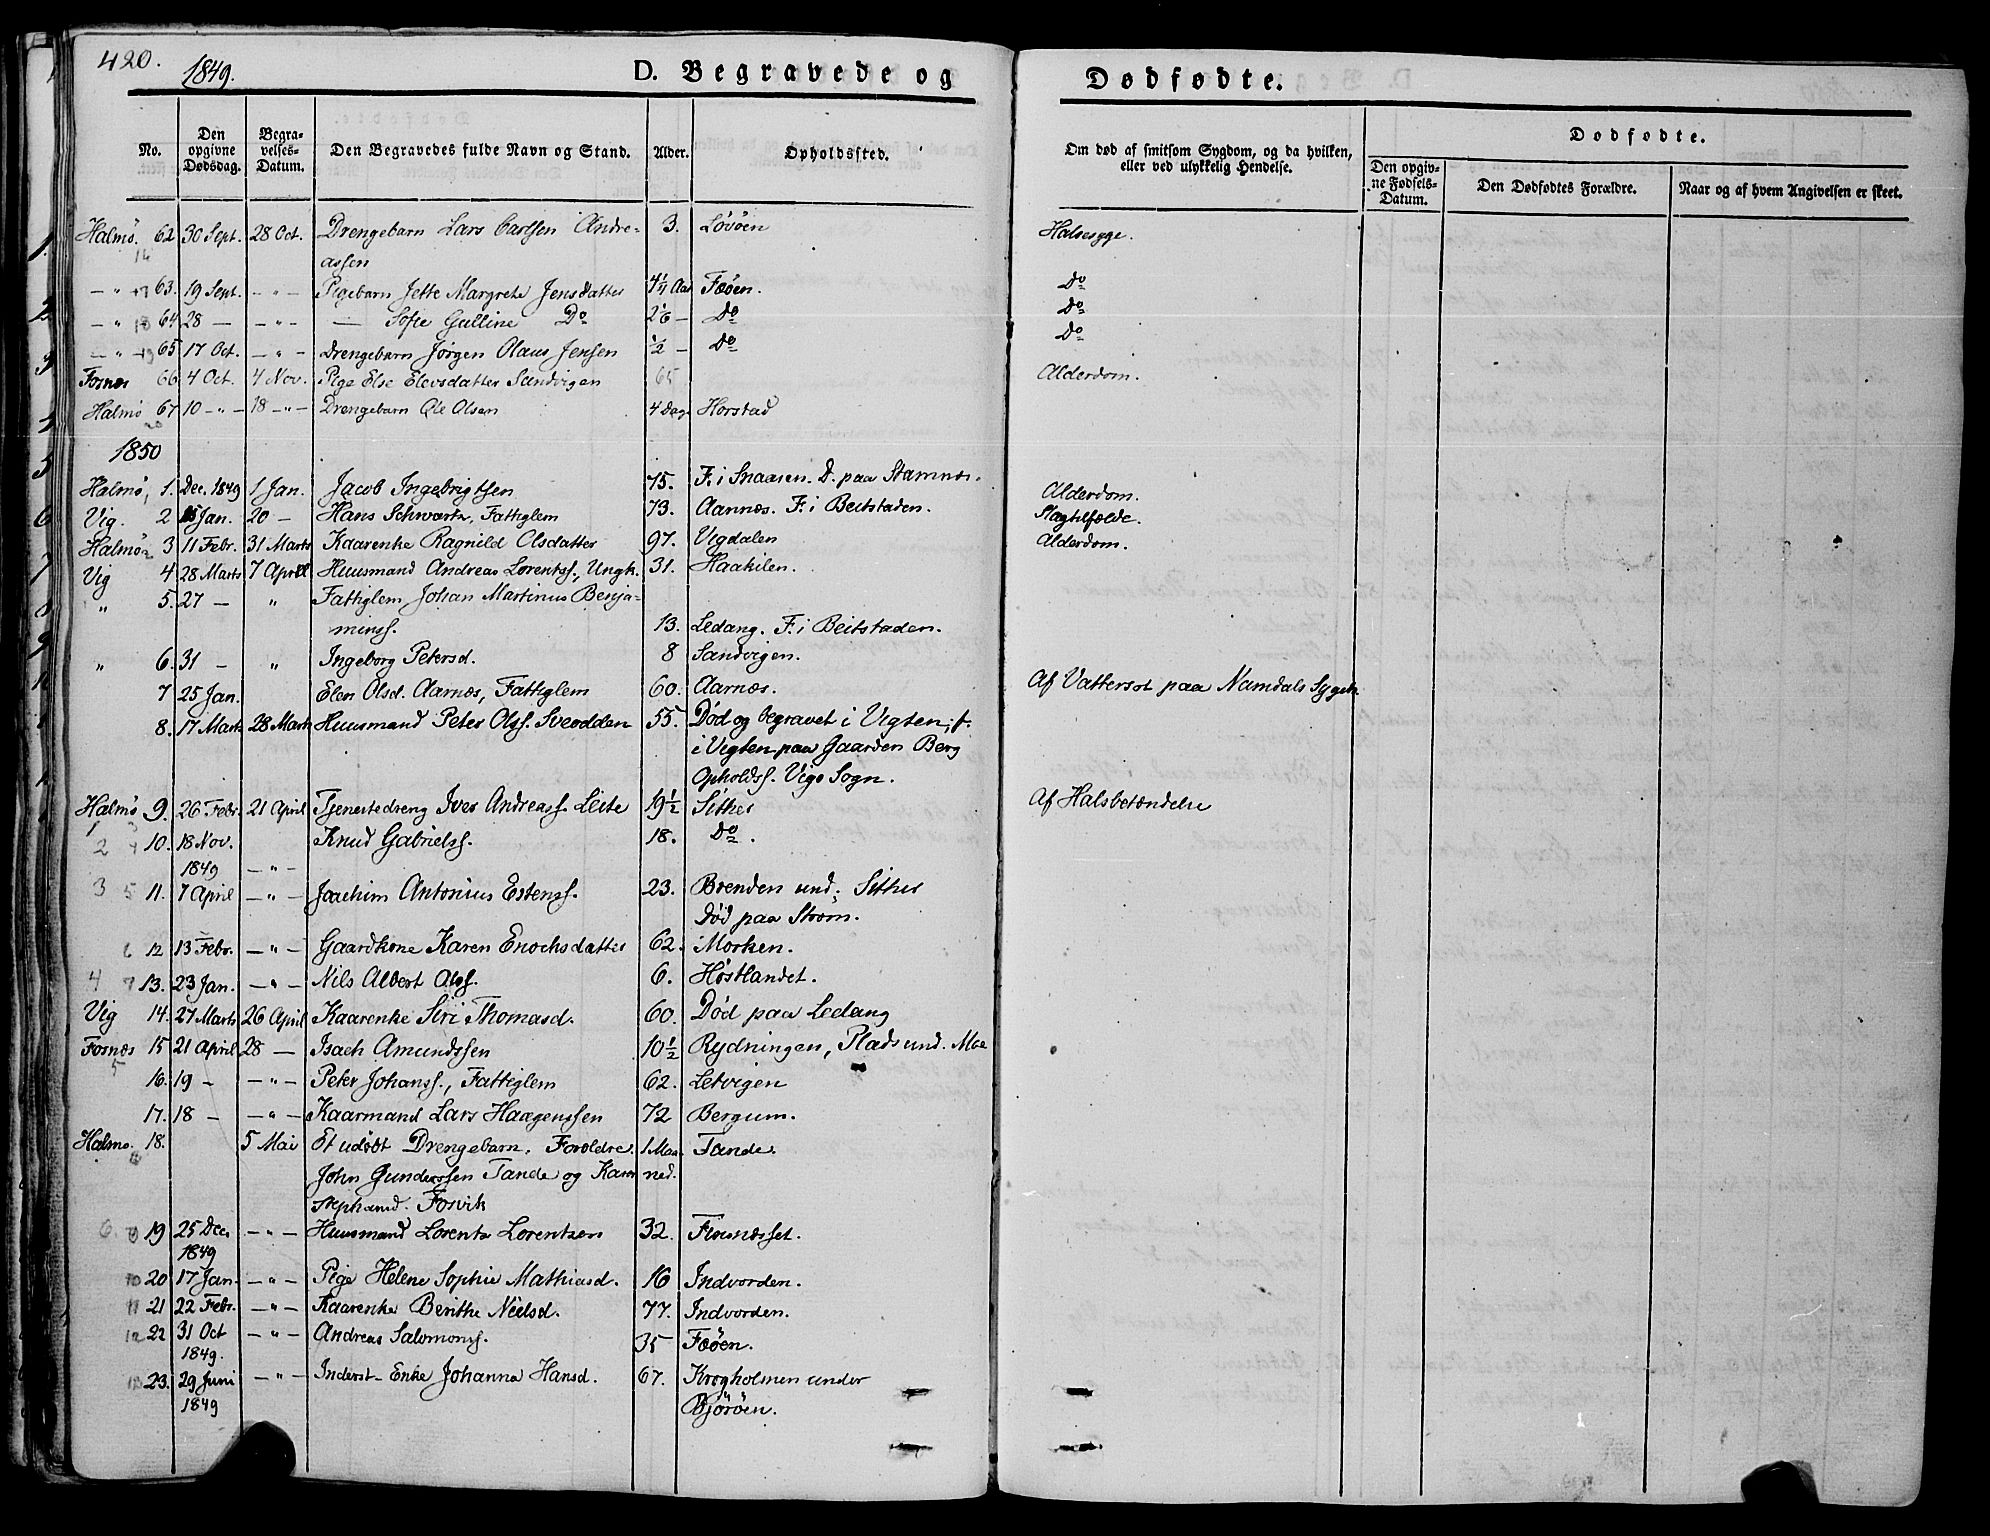 420.
1849.
D. Begravede og
Dødfødte.
No.
Den opgivne Dødsdag.
Begravelses-Datum.
Den Begravedes fulde Navn og Stand.
Alder.
Opholdssted.
Om død af smitsom Sygdom, og da hvilken, eller ved ulykkelig Hendelse.
Dødfødte.
Den opgivne Fødsels-Datum.
Den Dødfødtes Forældre.
Naar og af hvem Angivelsen er skeet.
Halmø. 62 30 Sept. 28 Oct. Drengebarn Lars Carlsen Andre- 3. Løvøen Halsesyge.
16 assen
— " 63. 19 Sept. — " — Pigebarn Jette Margrete Jensdatter 4 1/4 Aar Fæøen. Do
— " 18 64 28 — — " — — Sofie Galline Do 2 1/6 — Do Do
— " 19 65 17 Oct. — " — Drengebarn Jørgen Olaus Jensen 1/2 — Do Do
Fosnæs 66 4 Oct. 4 Nov. Pige Else Elevsdatter Sandvigen 65 Alderdom.
Halmø 67 10 — " — 18 — " — Drengebarn Ole Olsen 4 Dage Horstad
20
1850
Halmø, 1. Dec. 1849 1 Jan. Jacob Ingebrigtsen 75. F. i Snaasen. D. paa Stamnæs. Alderdom.
Vig. 2 Jan. 20 — Hans Schwartz, Fattiglem 73. Aannæs. F. i Beitstaden. Slagtilfælde.
Halmø 2 3 11 Febr. 31 Marts Kaarenke Ragnild Olsdatter 97. Vigdalen Alderdom.
Vig 4 28 Marts 7 April Huusmand Andreas Lorentss., Ungk. 31. Haakilen.
" 5. 27 — " Fattiglem Johan Martinus Benja-
minss. 13. Ledang. F. i Beitstaden.
" 6. 31 — " Ingeborg Petersd. 8 Sandvigen.
7 25 Jan. Elen Olsd. Aarnæs, Fattiglem 60. Aarnæs. Af Vattersot paa Namdals Sygeh.
8. 17 Marts 28 Marts Huusmand Peter Olss. Sveodden 55. Død og begravet i Vigten; f.
i Vigten paa Gaarden Berg
Opholdss. Vigs Sogn.
Halmø 9. 26 Febr. 21 April Tjenestedreng Iver Andreass. Leite 19 1/2 Sitter Af Halsbetændelse
1 3
2 4 10. 18 Nov. Knud Gabrielss. 18. Do.
1849 — " —
3 5 11. 7 April — " — Joachim Antonius Estenss. 23. Brenden und. Sitter
Død paa Strøm.
6 12 13 Febr. — " — Gaardkone Karen Enochsdatter 62. Morken.
4 7 13. 23 Jan. — " — Nils Albert Olss. 6. Høstlandet.
Vig 14. 27 Marts 26 April Kaarenke Siri Thomasd. 60. Død paa Ledang
Fosnæs 15 21 April 28 — Isach Amundssen 10 1/2 Rydningen, Plads und. Moe
5
16. 19 — — " — Peter Johanss., Fattiglem 62. Letvigen
17. 18 — — " — Kaarmand Lars Haagenssen 72 Bergum.
Halmø. 18. 5 Mai Et udøbt Drengebarn. Forældre 1 Maa- Fande.
John Gunderssen Fande og Karen ned.
Stephansd. Fosvik
6. 9 19 25 Dec. — " — Huusmand Lorentz Lorentzen 32. Finnæsset.
1849
10 20 17 Jan. — " — Pige Helene Sophie Mathiasd. 16 Indvorden.
11 21 22 Febr. — " — Kaarenke Berithe Neelsd. 77. Indvorden.
12 22 31 Oct — " — Andreas Salomonss. 35 Fæøen.
1849.
13 23. 29 Juni — " — Inderst-Enke Johanna Hansd. 67. Krogholmen under
1849 Bjørøen.